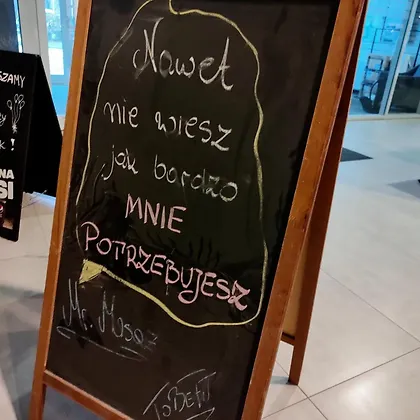 Nawet
nie wiesz
jak bardzo
MNIE
POTRZEBUJESZ
Mr. Masaż
ToBEFIT
SZAMY
!
NA
SI